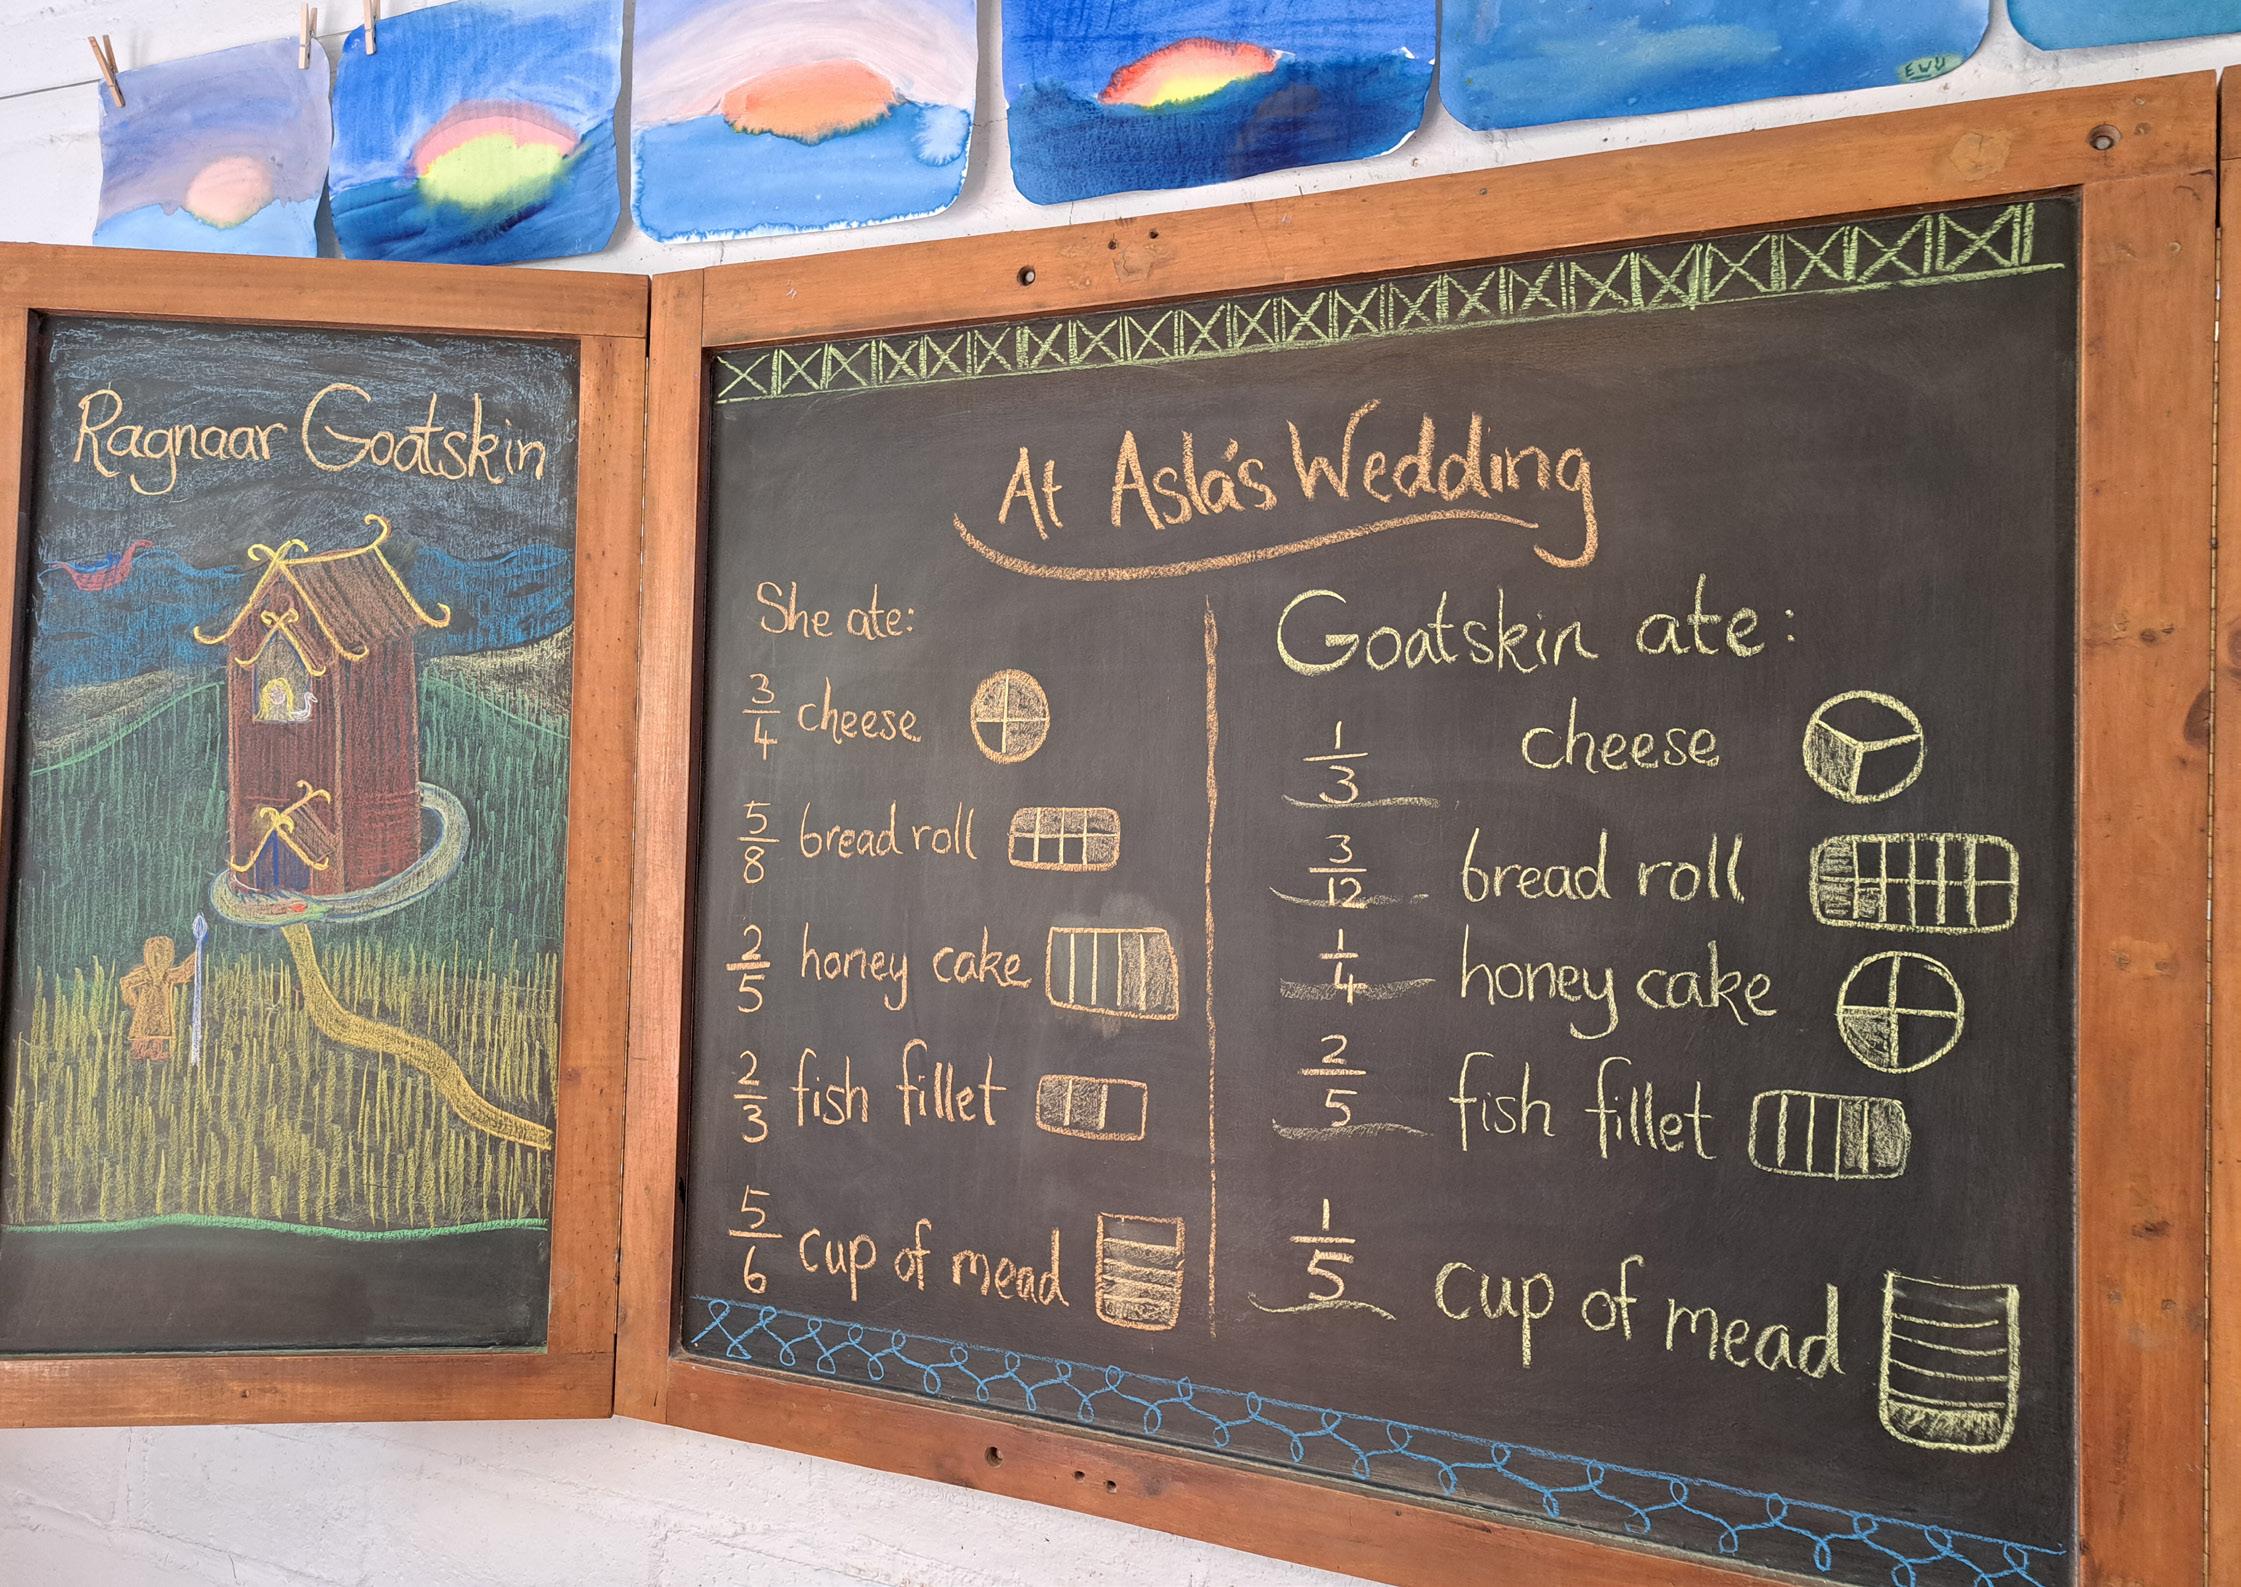 EWU
Ragnaar Goatskin
At Asla's Wedding
She ate:
3/4 cheese
5/8 bread roll
2/5 honey cake
2/3 fish fillet
5/6 cup of mead
Goatskin ate:
1/3 cheese
3/12 bread roll
1/4 honey cake
2/5 fish fillet
1/5 cup of mead